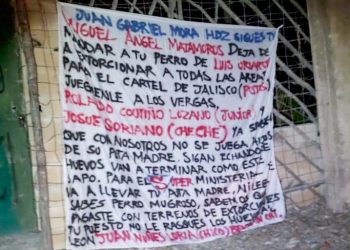 JUAN GABRIEL MORA HDZ SIGUES TU
MIGUEL ANGEL MATAMOROS DEJA DE
MANDAR A TU PERRO DE LUIS URIARTE
A EXTORCIONAR A TODAS LAS AREAS
PARA EL CARTEL DE JALISCO (PUTOS)
JUEGENLE A LOS VERGAS,
ROLADO COUTIÑO LOZANO (JUNIOR) Y
JOSUE SORIANO (CHE CHE) YA SABEN
QUE CON NOSOTROS NO SE JUEGA HIJOS
DE SU PITA MADRE. SIGAN ECHANDOSE
HUEVOS VAN A TERMINAR COMO ESTE
SAPO. PARA EL SUPER MINISTERIAL TE
VA A LLEVAR TU PITA MADRE, NI LEER
SABES PERRO MUGROSO, SABEMOS QUE
PAGASTE CON TERRENOS DE EXTORCIONES
TU PUESTO NO LE RASQUES LOS HUEVOS AL
LEON JUAN NUÑES